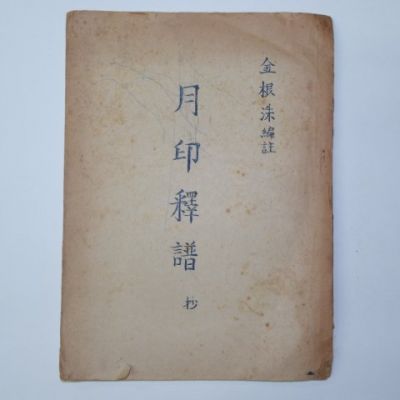 金根洙編註
月印釋譜抄